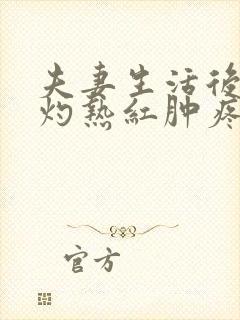 夫妻生活後
灼熱紅肿疼
官方